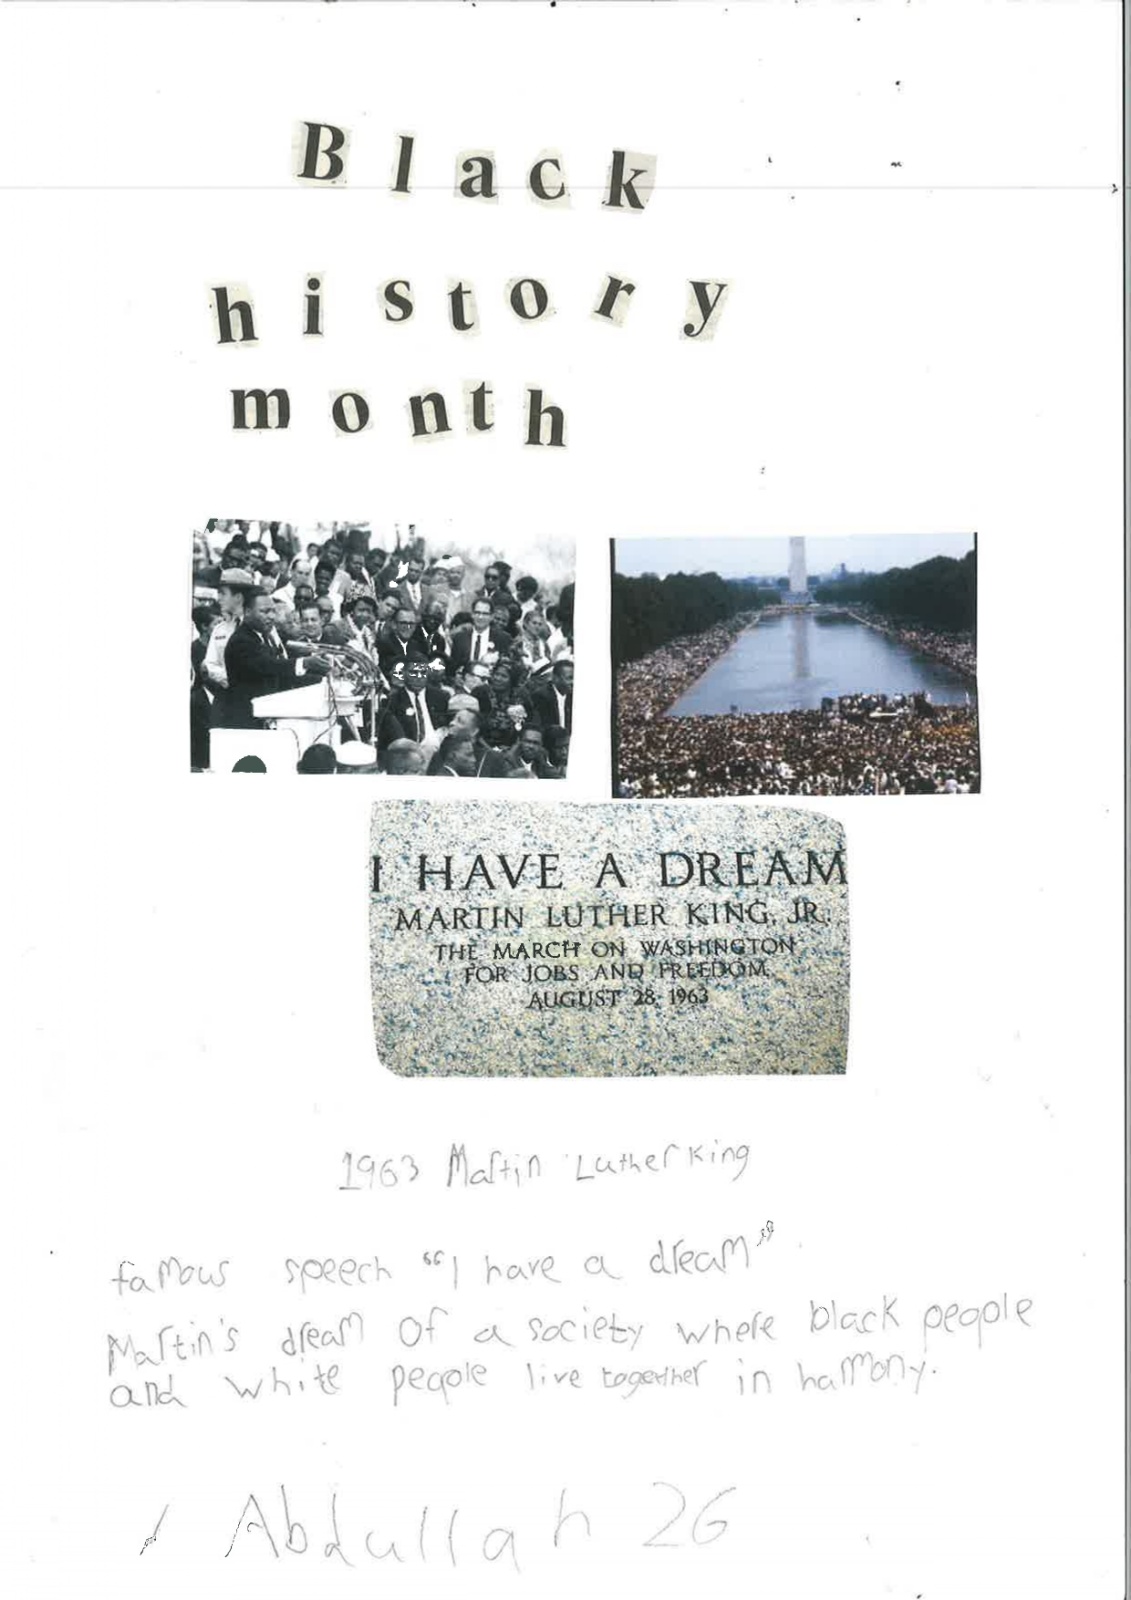 Black
history
month
I HAVE A DREAM
MARTIN LUTHER KING, JR.
THE MARCH ON WASHINGTON
FOR JOBS AND FREEDOM
AUGUST 28, 1963
1963 Martin Luther King
famous speech “I have a dream”
Martin's dream of a society where black people
and white people live together in harmony.
Abdullah 2G